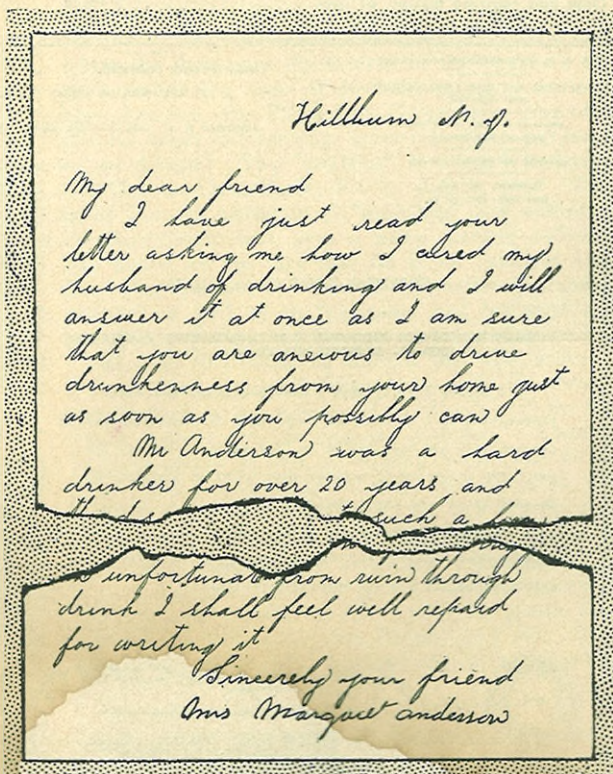 Hillburn N. Y.
My dear friend
I have just read your
letter asking me how I cured my
husband of drinking and I will
answer it at once as I am sure
that you are anxious to drive
drunkenness from your home just
as soon as you possibly can
Mr Anderson was a hard
drinker for over 20 years and
such a
unfortunate from ruin through
drink I shall feel well repaid
for writing it
Sincerely your friend
Mrs Margaret Anderson